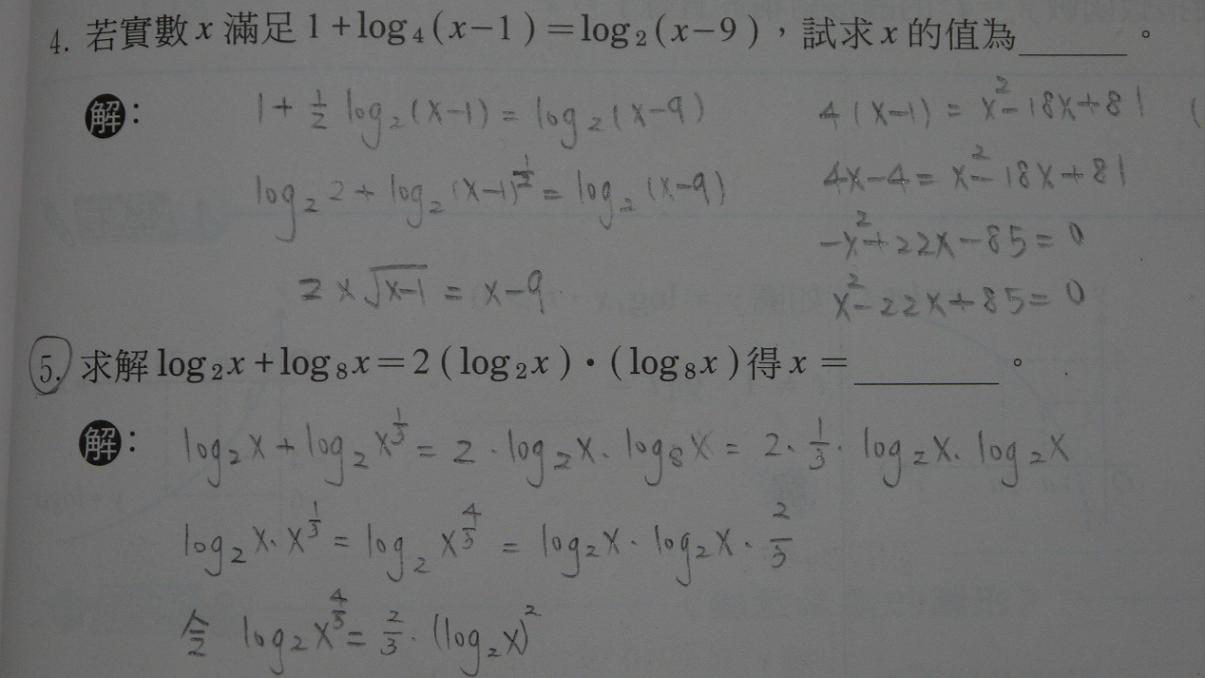 4. 若實數 x 滿足 1+log₄(x−1)=log₂(x−9)，試求 x 的值為______。
解：
1 + 1/2 log₂(x−1) = log₂(x−9)
log₂2 + log₂(x−1)^(1/2) = log₂(x−9)
2 × √(x−1) = x−9
4(x−1) = x²−18x+81 (
4x−4 = x²−18x+81
−x²+22x−85 = 0
x²−22x+85 = 0
5. 求解 log₂x+log₈x=2(log₂x)·(log₈x) 得 x =________。
解：
log₂x + log₂x^(1/3) = 2·log₂x·log₈x = 2·1/3·log₂x·log₂x
log₂x·x^(1/3) = log₂x^(4/3) = log₂x·log₂x·2/3
令 log₂x^(4/3) = 2/3·(log₂x)²